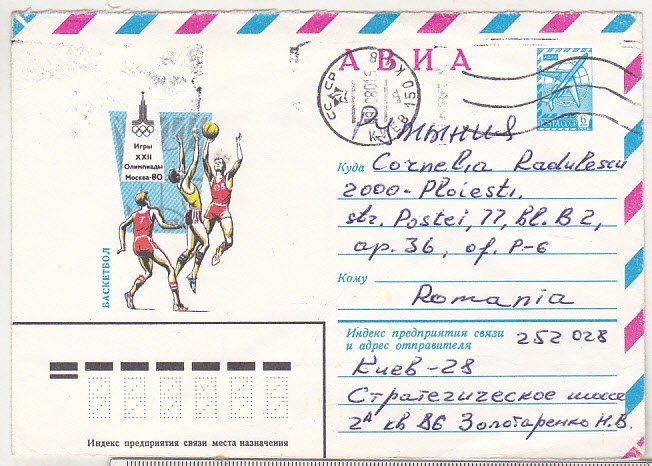 АВИА
ПОЧТА СССР
6
Игры
XXII
Олимпиады
Москва-80
БАСКЕТБОЛ
Румыния
Куда Cornelia Radulescu
2000-Ploiesti.
str. Postei, 77, bl. B2,
ap. 36, of. P-6
Кому
Romania
Индекс предприятия связи
и адрес отправителя
252028
Киев-28
Стратегическое шоссе
2А кв 86 Золотаренко Н.В.
Индекс предприятия связи места назначения